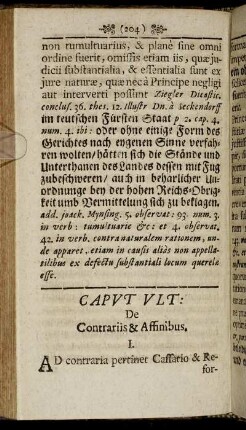 (204)
non tumultuarius, & planè sine omni
ordine fuerit, omissis etiam iis, quæ ju-
dicii substantialia, & essentialia sunt ex
jure naturæ, quæ nec à Principe negligi
aut interverti possint Ziegler Dicastic.
conclus. 36. thes. 12. illustr Dn. à Seckendorff
im teutschen Fürsten Staat p 2. cap. 4.
num. 4. ibi: oder ohne einige Form des
Gerichtes nach eygenen Sinne verfah-
ren wolten / hätten sich die Stände und
Unterthanen des Landes dessen mit Fug
zubeschweren / auch in beharlicher Un-
ordnunge bey der hohen Reichs-Obrig-
keit umb Vermittelung sich zu beklagen.
add. joach. Mynsing. 5. observat: 93. num. 3.
in verb: tumultuarie &c: et 4. observat.
42. in verb. contra naturalem rationem, un-
de apparet. etiam in causis aliàs non appella-
bilibus ex defectu substantiali locum querelæ
esse.
CAPVT VLT:
De
Contrariis & Affinibus.
I.
AD contraria pertinet Cassatio & Re-
for-